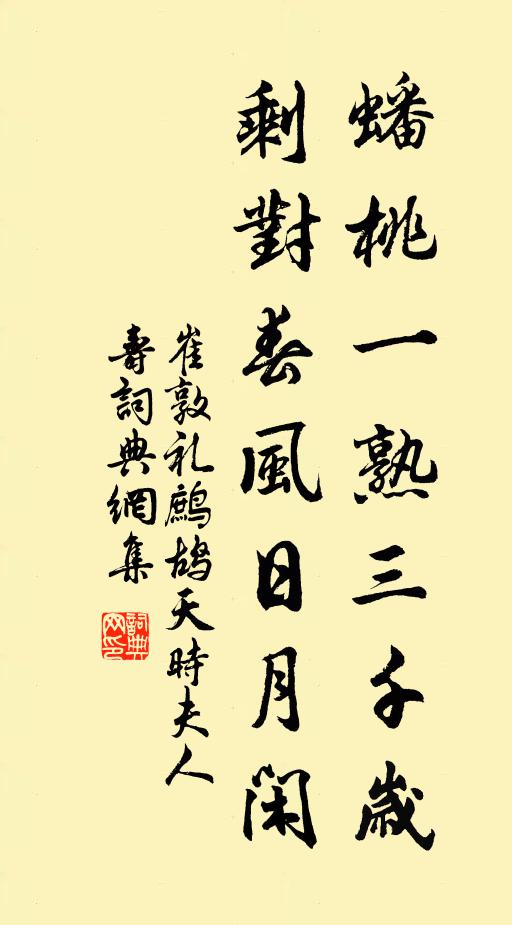 蟠桃一熟三千歲
剩對春風日月閑
崔敦礼鷓鴣天時夫人
壽詞典網集
詞典網印